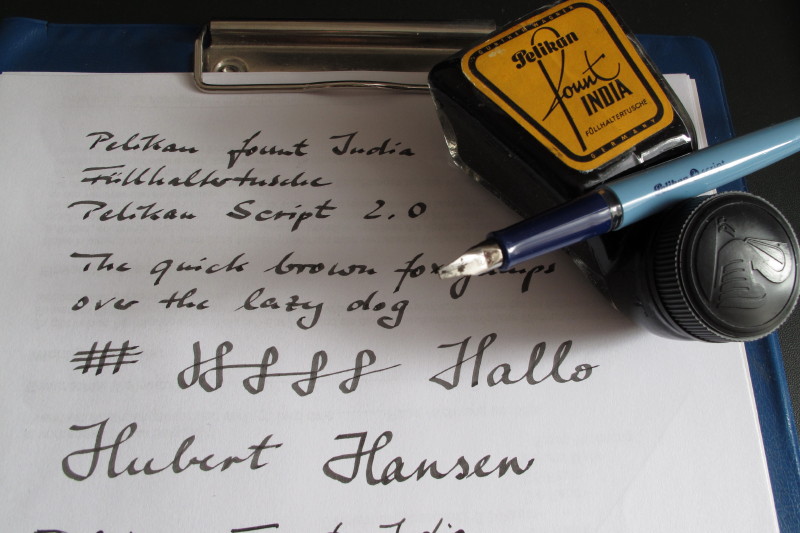 GÜNTHER WAGNER
Pelikan
fount
INDIA
FÜLLHALTERTUSCHE
GERMANY
Script
Pelikan fount India
Füllhaltertusche
Pelikan Script 2.0
The quick brown fox jumps
over the lazy dog
Hallo
Hubert Hansen
Fount India